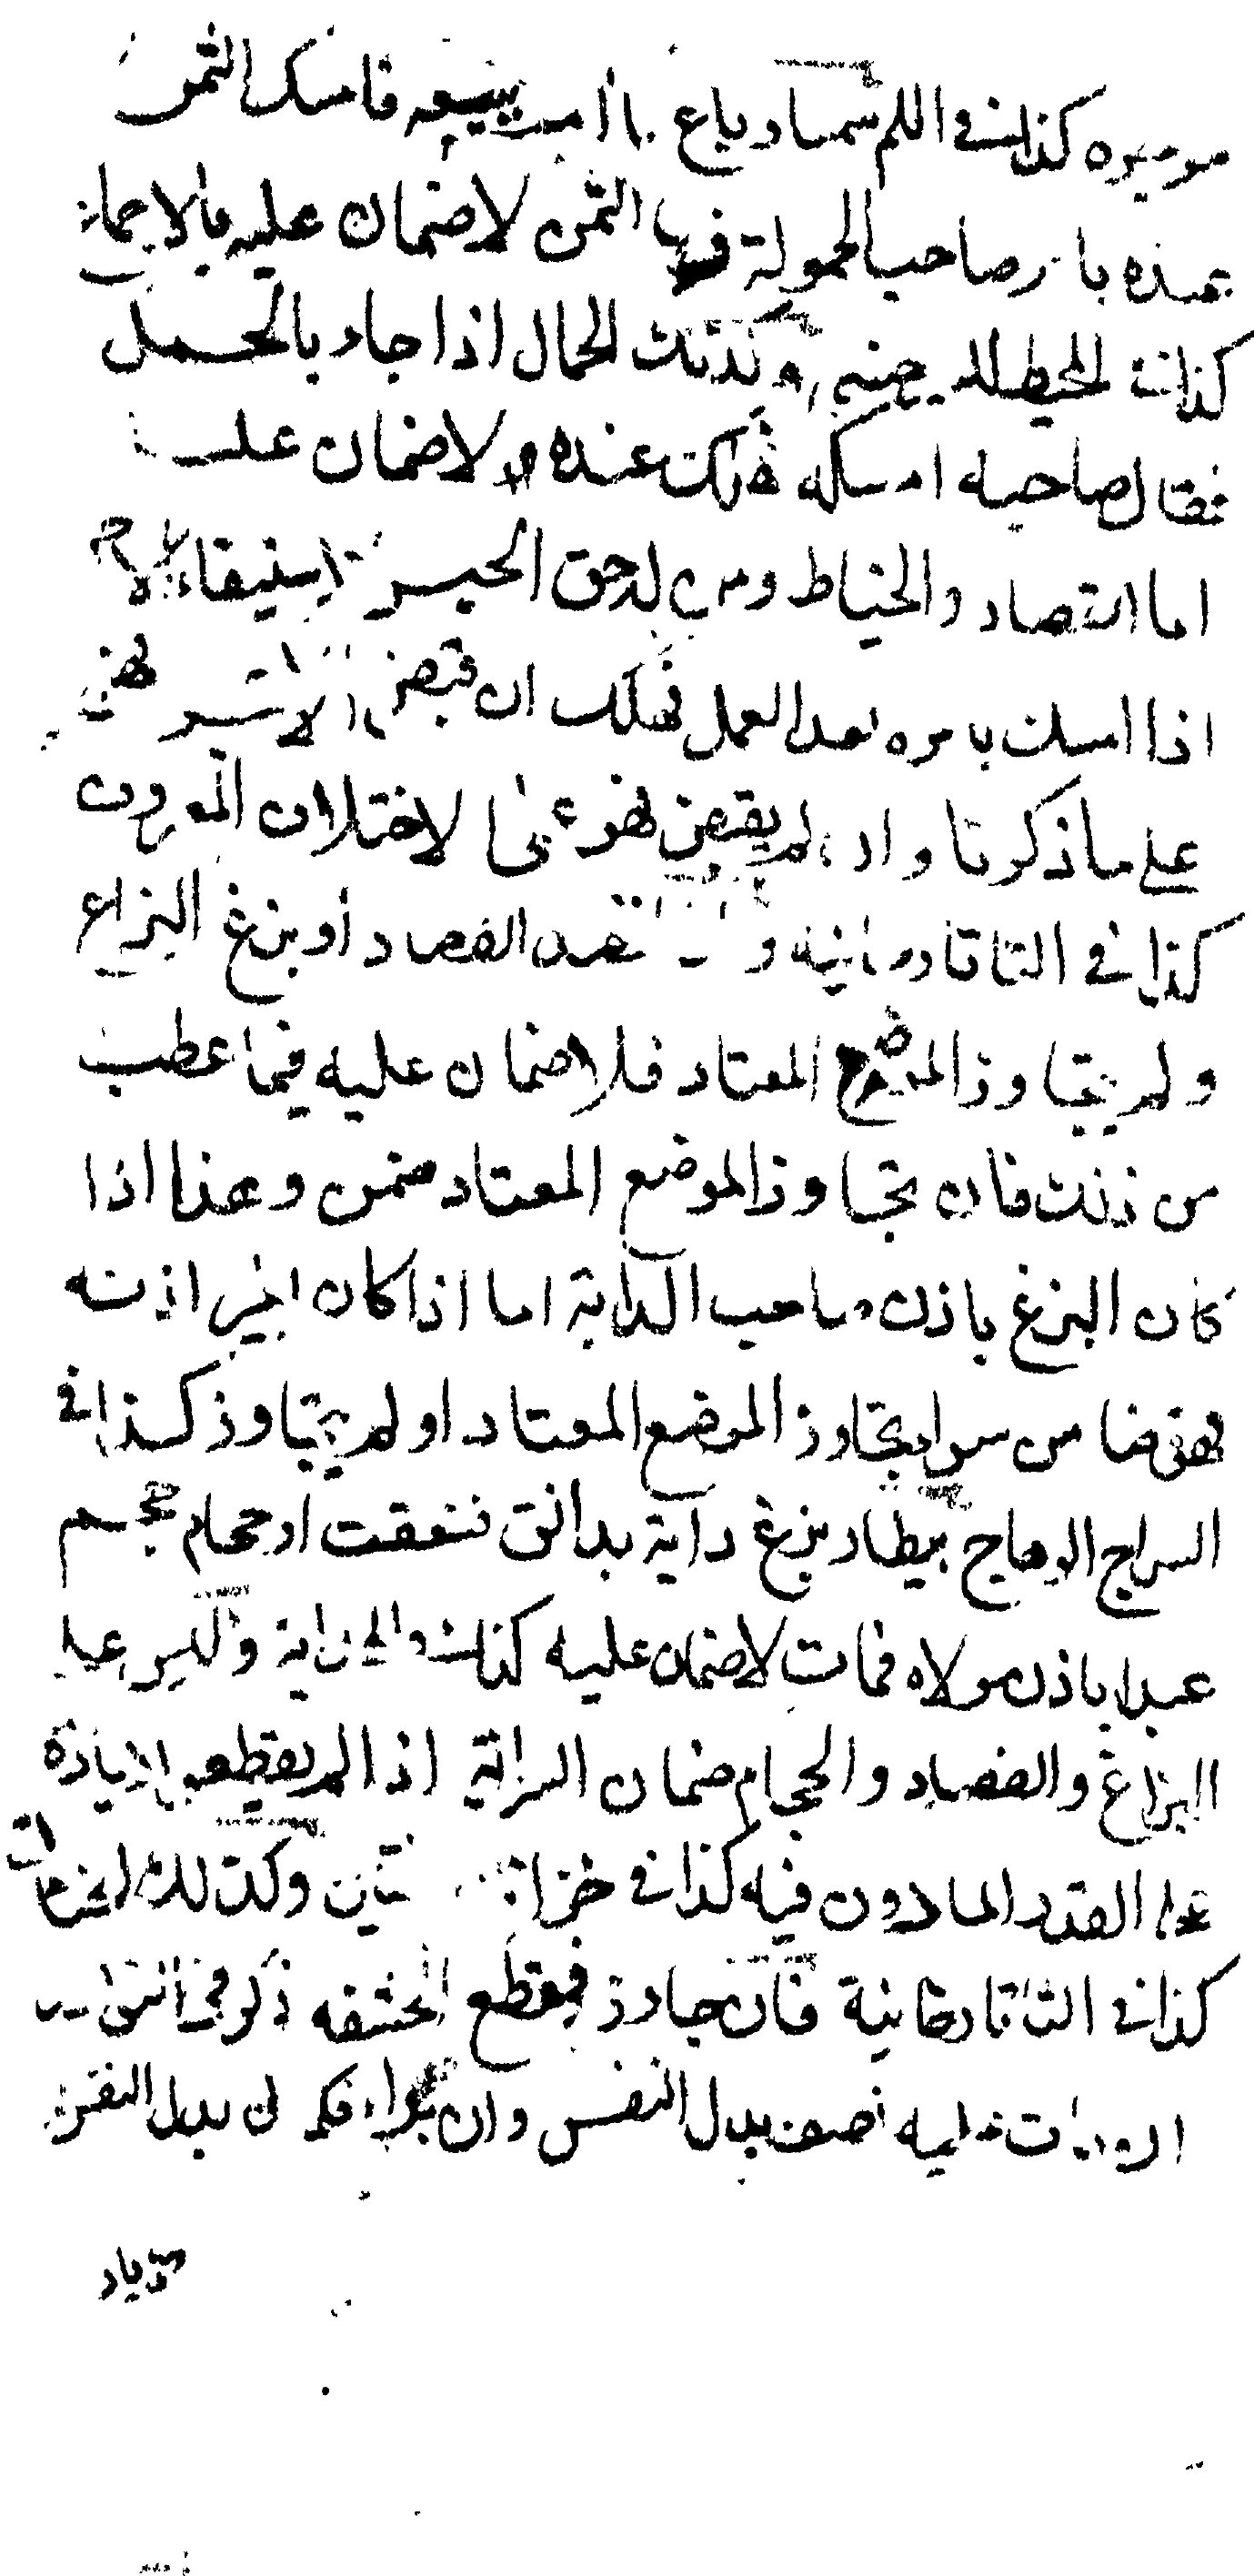 كذا في السمسار وباع ما امر ببيعه فامسك الثمن
عنده بامر صاحب الحمولة الثمن لا ضمان عليه بالاجماع
كذا في المحيط وكذلك الحمال اذا جاء بالحمل
فقال صاحبه امسكه عندك ولا ضمان عليه
اما القصار والخياط ومن له حق الحبس لاستيفاء الاجر
اذا امسك بامره بعد العمل فهلك ان قبض الاجر فهو
على ما ذكرنا وان لم يقبض فهو على الاختلاف المعروف
كذا في التاتارخانية و فصد الفصاد او بزغ البزاغ
ولم يتجاوز الموضع المعتاد فلا ضمان عليه فيما عطب
من ذلك فان تجاوز الموضع المعتاد ضمن وهذا اذا
كان البزغ باذن صاحب الدابة اما اذا كان بغير اذنه
فهو ضامن سواء تجاوز الموضع المعتاد او لم يتجاوز كذا في
السراج الوهاج بيطار بزغ دابة بدانق فنفقت او حجام حجم
عبدا باذن مولاه فمات لا ضمان عليه كذا في وليس على
البزاغ والفصاد والحجام ضمان السراية اذا لم يقطعوا زيادة
على القدر الماذون فيه كذا في خزانة المفتين وكذلك الختان
كذا في التاتارخانية فان جاوز فقطع الحشفة ذكر في
ان مات فعليه نصف بدل النفس وان براء فكل بدل النفس